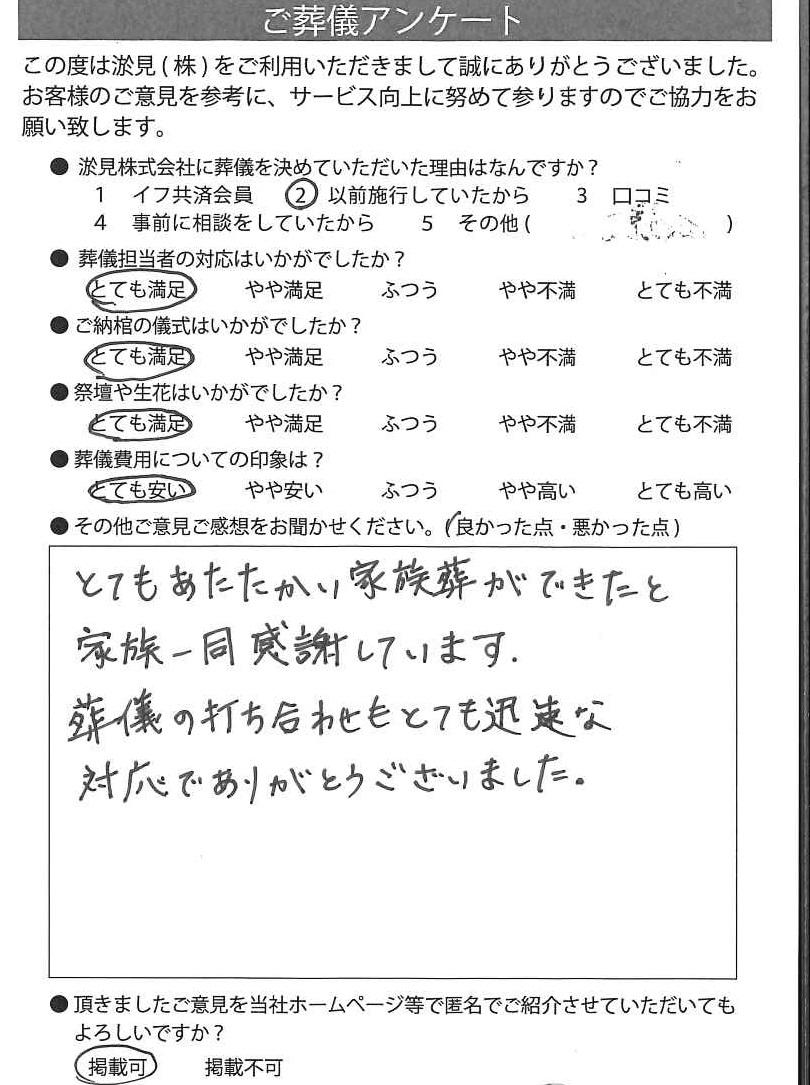 ご葬儀アンケート
この度は淤見(株)をご利用いただきまして誠にありがとうございました。
お客様のご意見を参考に、サービス向上に努めて参りますのでご協力をお
願い致します。
● 淤見株式会社に葬儀を決めていただいた理由はなんですか？
1 イフ共済会員 2 以前施行していたから 3 口コミ
4 事前に相談をしていたから 5 その他( )
● 葬儀担当者の対応はいかがでしたか？
とても満足 やや満足 ふつう やや不満 とても不満
● ご納棺の儀式はいかがでしたか？
とても満足 やや満足 ふつう やや不満 とても不満
● 祭壇や生花はいかがでしたか？
とても満足 やや満足 ふつう やや不満 とても不満
● 葬儀費用についての印象は？
とても安い やや安い ふつう やや高い とても高い
● その他ご意見ご感想をお聞かせください。(良かった点・悪かった点)
とてもあたたかい家族葬ができたと
家族一同感謝しています.
葬儀の打ち合わせもとても迅速な
対応でありがとうございました。
● 頂きましたご意見を当社ホームページ等で匿名でご紹介させていただいても
よろしいですか？
掲載可 掲載不可